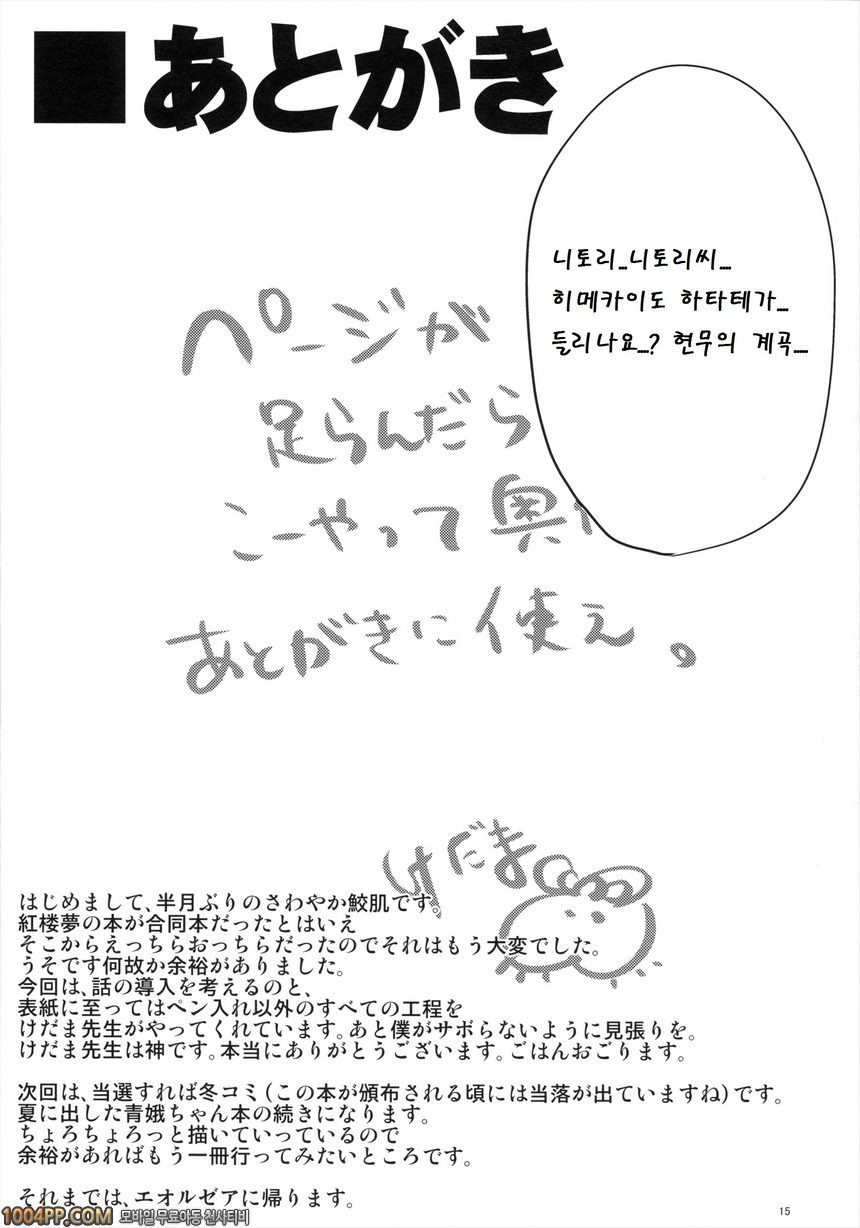 ■あとがき
니토리...니토리씨...
히메카이도 하타테가...
들리나요...? 현무의 계곡...
ページが
足らんだら
こーやって奥
あとがきに使え。
けだま
はじめまして、半月ぶりのさわやか鮫肌です。
紅楼夢の本が合同本だったとはいえ
そこからえっちらおっちらだったのでそれはもう大変でした。
うそです何故か余裕がありました。
今回は、話の導入を考えるのと、
表紙に至ってはペン入れ以外のすべての工程を
けだま先生がやってくれています。あと僕がサボらないように見張りを。
けだま先生は神です。本当にありがとうございます。ごはんおごります。
次回は、当選すれば冬コミ(この本が頒布される頃には当落が出ていますね)です。
夏に出した青娥ちゃん本の続きになります。
ちょろちょろっと描いていっているので
余裕があればもう一冊行ってみたいところです。
それまでは、エオルゼアに帰ります。
15
1004PP.COM 모바일 무료야동 천사티비